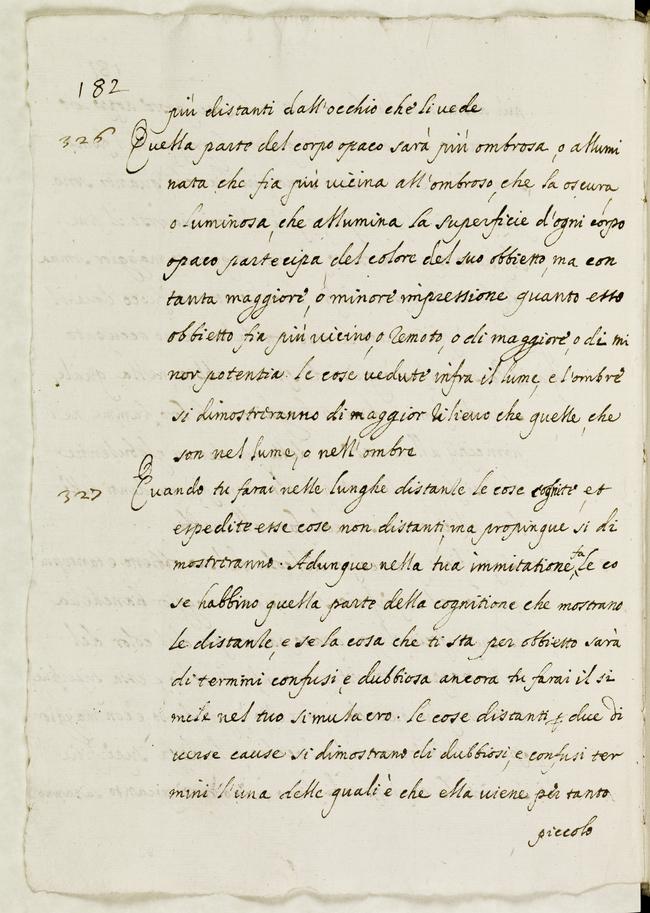 182
più distanti dall'occhio che li vede
326 Quella parte del corpo opaco sarà più ombrosa, o allumi
nata che fia più vicina all'ombroso, che la oscura
o luminosa, che allumina la superficie d'ogni corpo
opaco partecipa del colore del suo obbietto, ma con
tanta maggiore, o minore impressione quanto esso
obbietto fia più vicino, o remoto, o di maggiore, o di mi
nor potentia. le cose vedute infra il lume, e l'ombre
si dimostreranno di maggior rilievo che quelle, che
son nel lume, o nell'ombre
327 Quando tu farai nelle lunghe distantie le cose cognite, et
espedite esse cose non distanti, ma propinque si di
mostreranno. Adunque nella tua immitatione fa le co
se habbino quella parte della cognitione che mostrano
le distantie, e se la cosa che ti sta per obbietto sarà
di termini confusi, e dubbiosa ancora tu farai il si
mile nel tuo simulacro. le cose distanti p due di
verse cause si dimostrano di dubbiosi, e confusi ter
mini l'una delle quali è che ella viene per tanto
piccolo